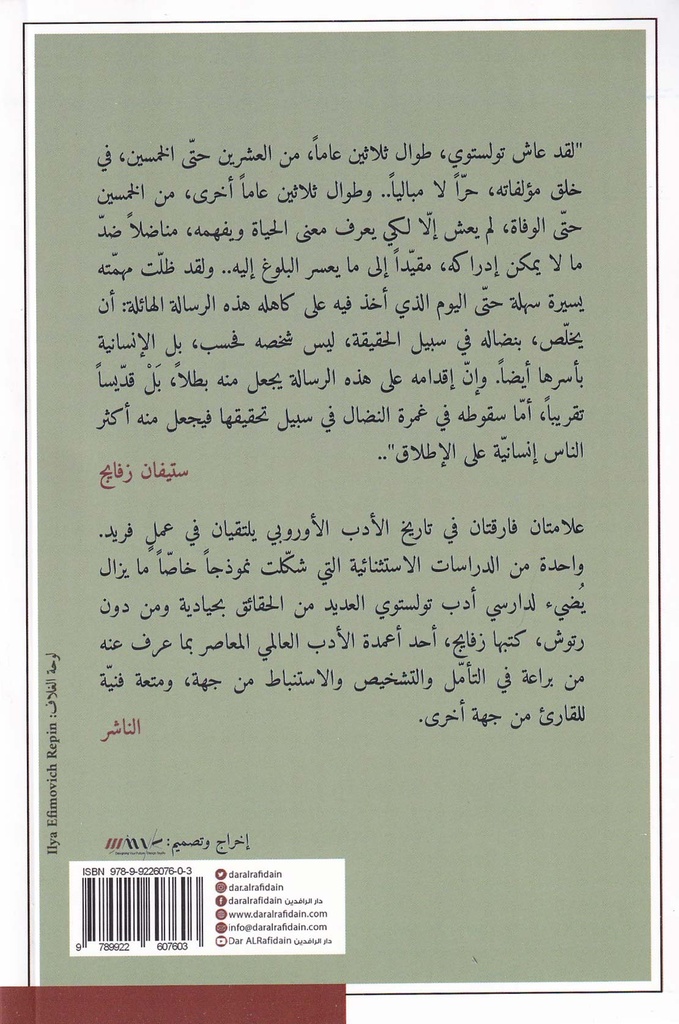 "لقد عاش تولستوي، طوال ثلاثين عاماً، من العشرين حتّى الخمسين، في
خلق مؤلفاته، حرّاً لا مبالياً.. وطوال ثلاثين عاماً أخرى، من الخمسين
حتّى الوفاة، لم يعش إلّا لكي يعرف معنى الحياة ويفهمه، مناضلاً ضدّ
ما لا يمكن إدراكه، مقيّداً إلى ما يعسر البلوغ إليه.. ولقد ظلّت مهمّته
يسيرة سهلة حتّى اليوم الذي أخذ فيه على كاهله هذه الرسالة الهائلة: أن
يخلّص، بنضاله في سبيل الحقيقة، ليس شخصه فحسب، بل الإنسانية
بأسرها أيضاً. وإنّ إقدامه على هذه الرسالة يجعل منه بطلاً، بَلْ قدّيساً
تقريباً، أمّا سقوطه في غمرة النضال في سبيل تحقيقها فيجعل منه أكثر
الناس إنسانيّة على الإطلاق"..
ستيفان زفايج
علامتان فارقتان في تاريخ الأدب الأوروبي يلتقيان في عملٍ فريد.
واحدة من الدراسات الاستثنائية التي شكّلت نموذجاً خاصّاً ما يزال
يُضيء لدارسي أدب تولستوي العديد من الحقائق بحيادية ومن دون
رتوش، كتبها زفايج، أحد أعمدة الأدب العالمي المعاصر بما عرف عنه
من براعة في التأمّل والتشخيص والاستنباط من جهة، ومتعة فنيّة
للقارئ من جهة أخرى.
الناشر
لوحة الغلاف: Ilya Efimovich Repin
إخراج وتصميم:
ISBN 978-9-9226076-0-3
9 789922 607603
daralrafidain
dar.alrafidain
daralrafidain دار الرافدين
www.daralrafidain.com
info@daralrafidain.com
Dar ALRafidain دار الرافدين